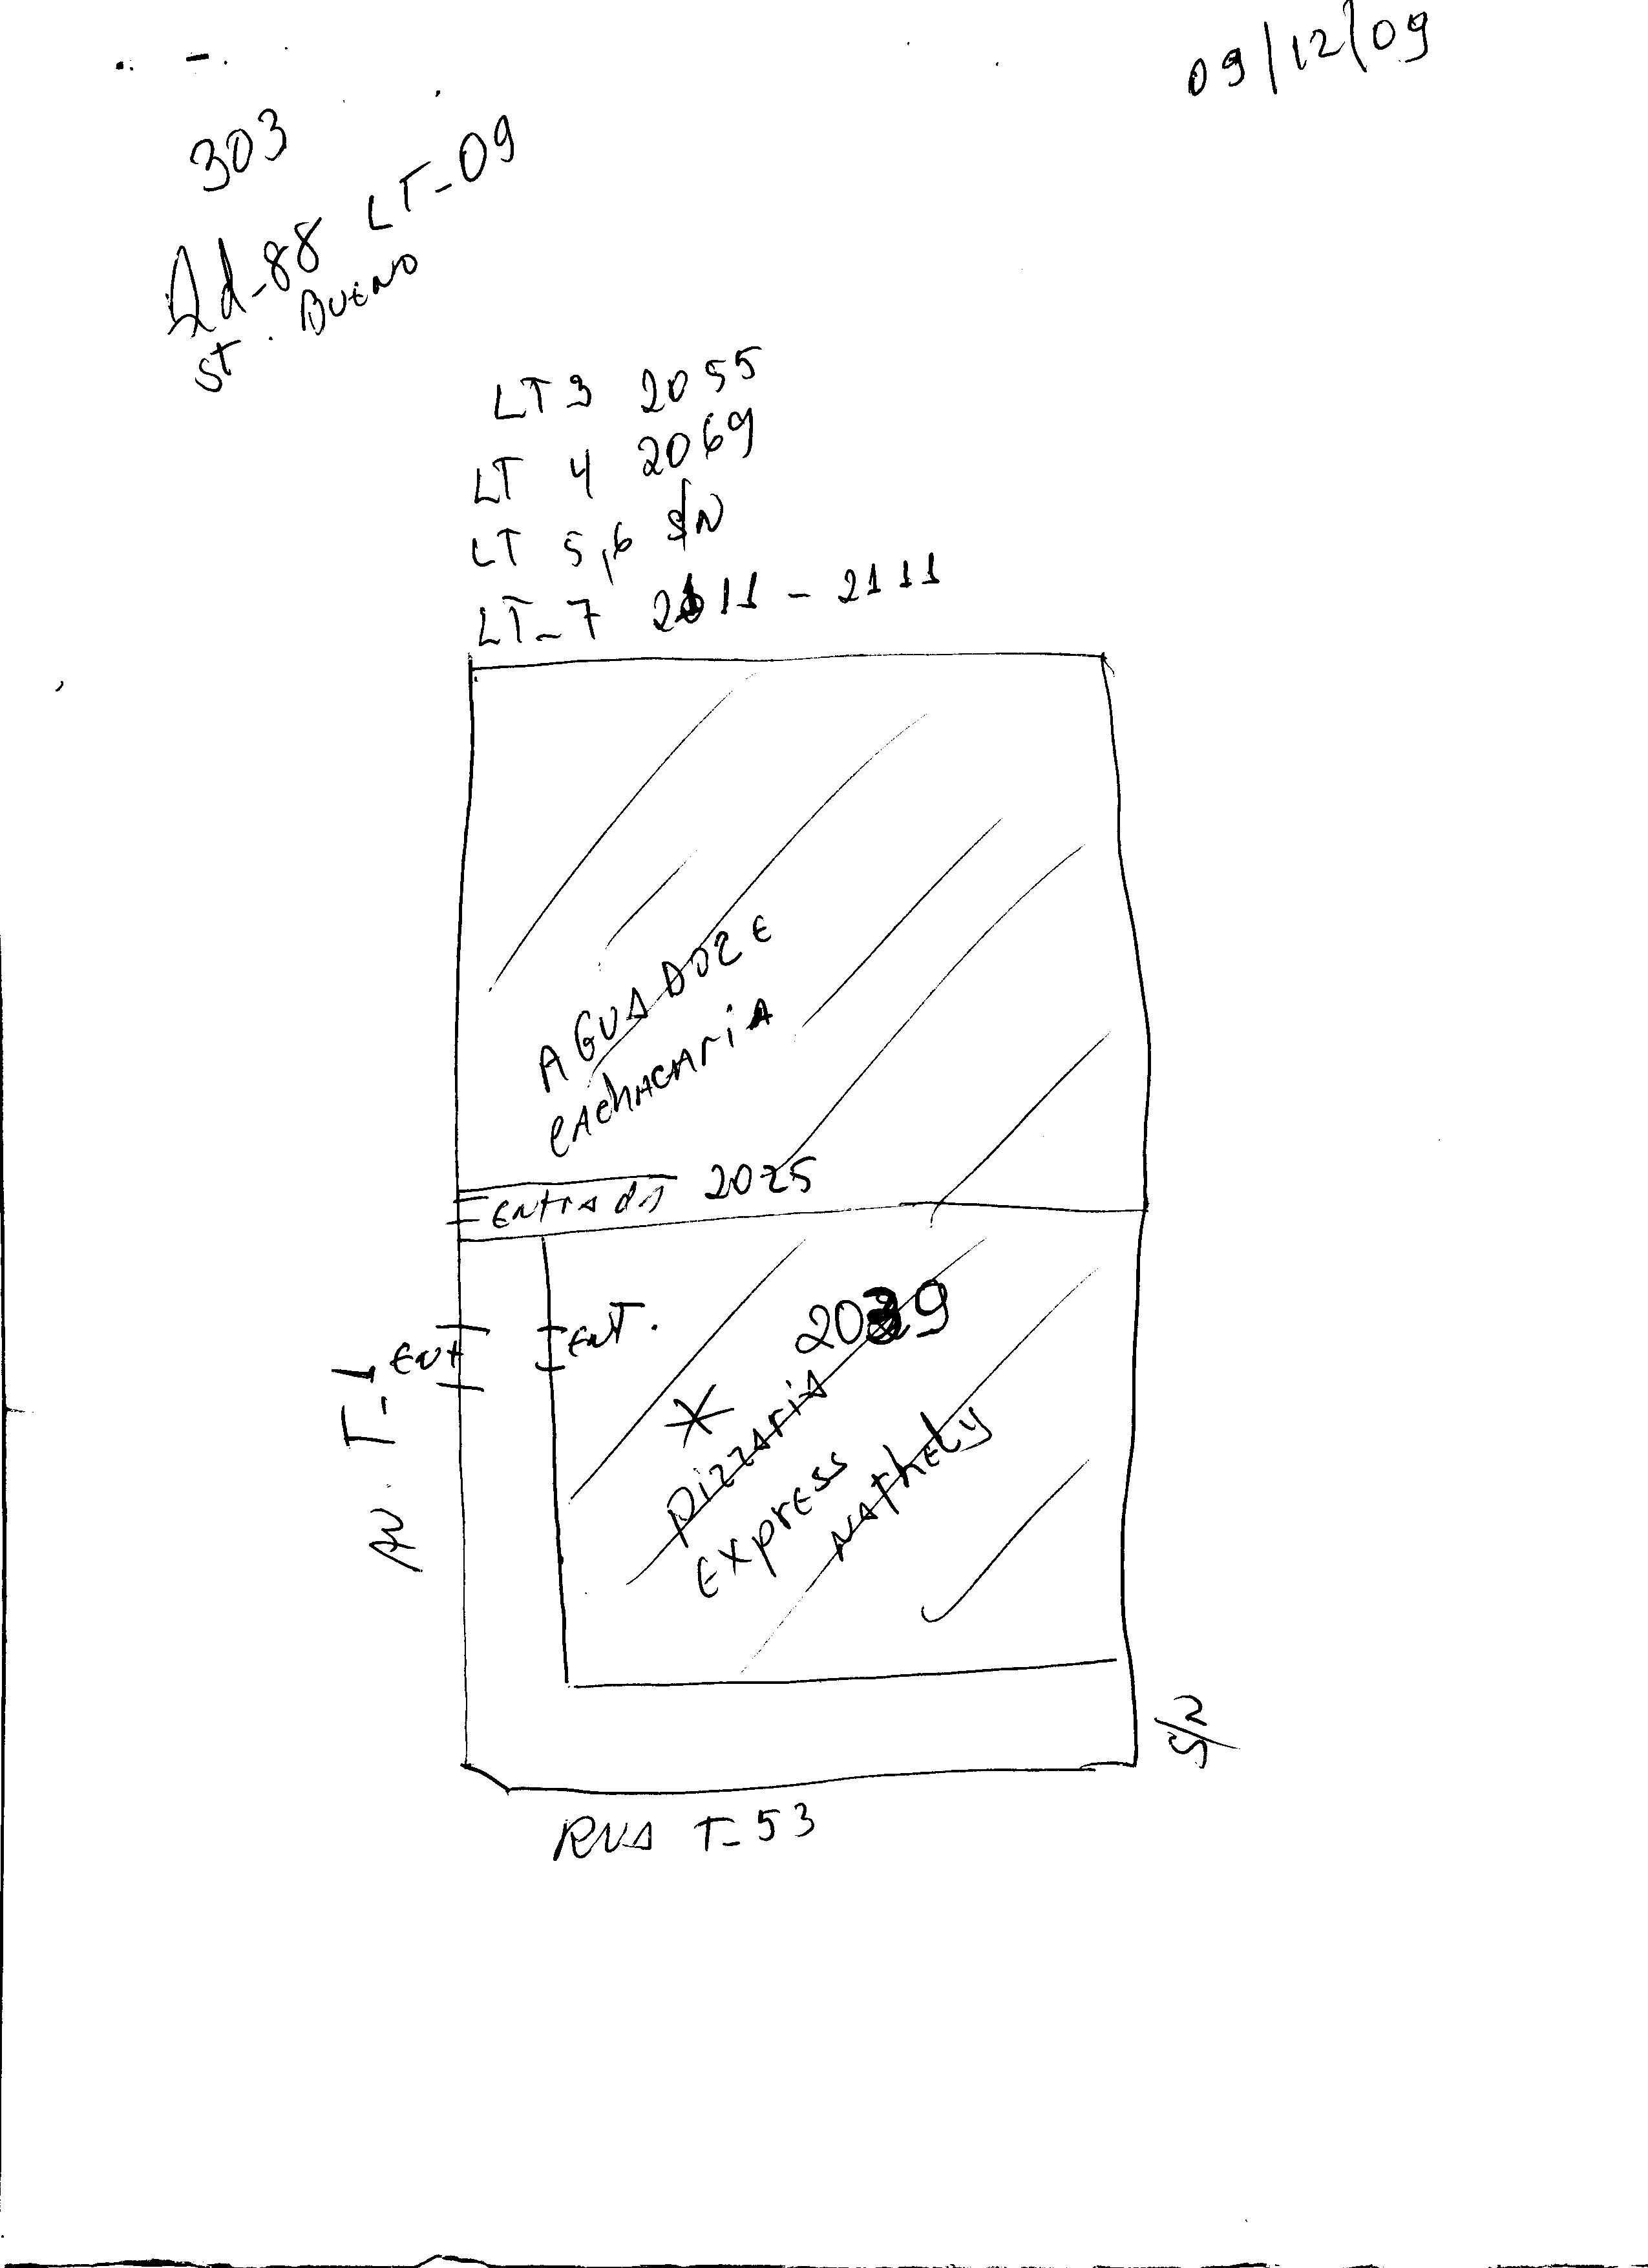 09/12/09
303
Qd-88 LT-09
St. BUENO
LT 3 2055
LT 4 2069
LT 5,6 S/N
LT-7 2111 - 2111
AGUA DOZE
CACHACARIA
ENTRADA 2025
ENT.
ENT
2039
*
PIZZARIA
EXPRESS
NATHELY
AV. T-1
S/N
RUA T-53